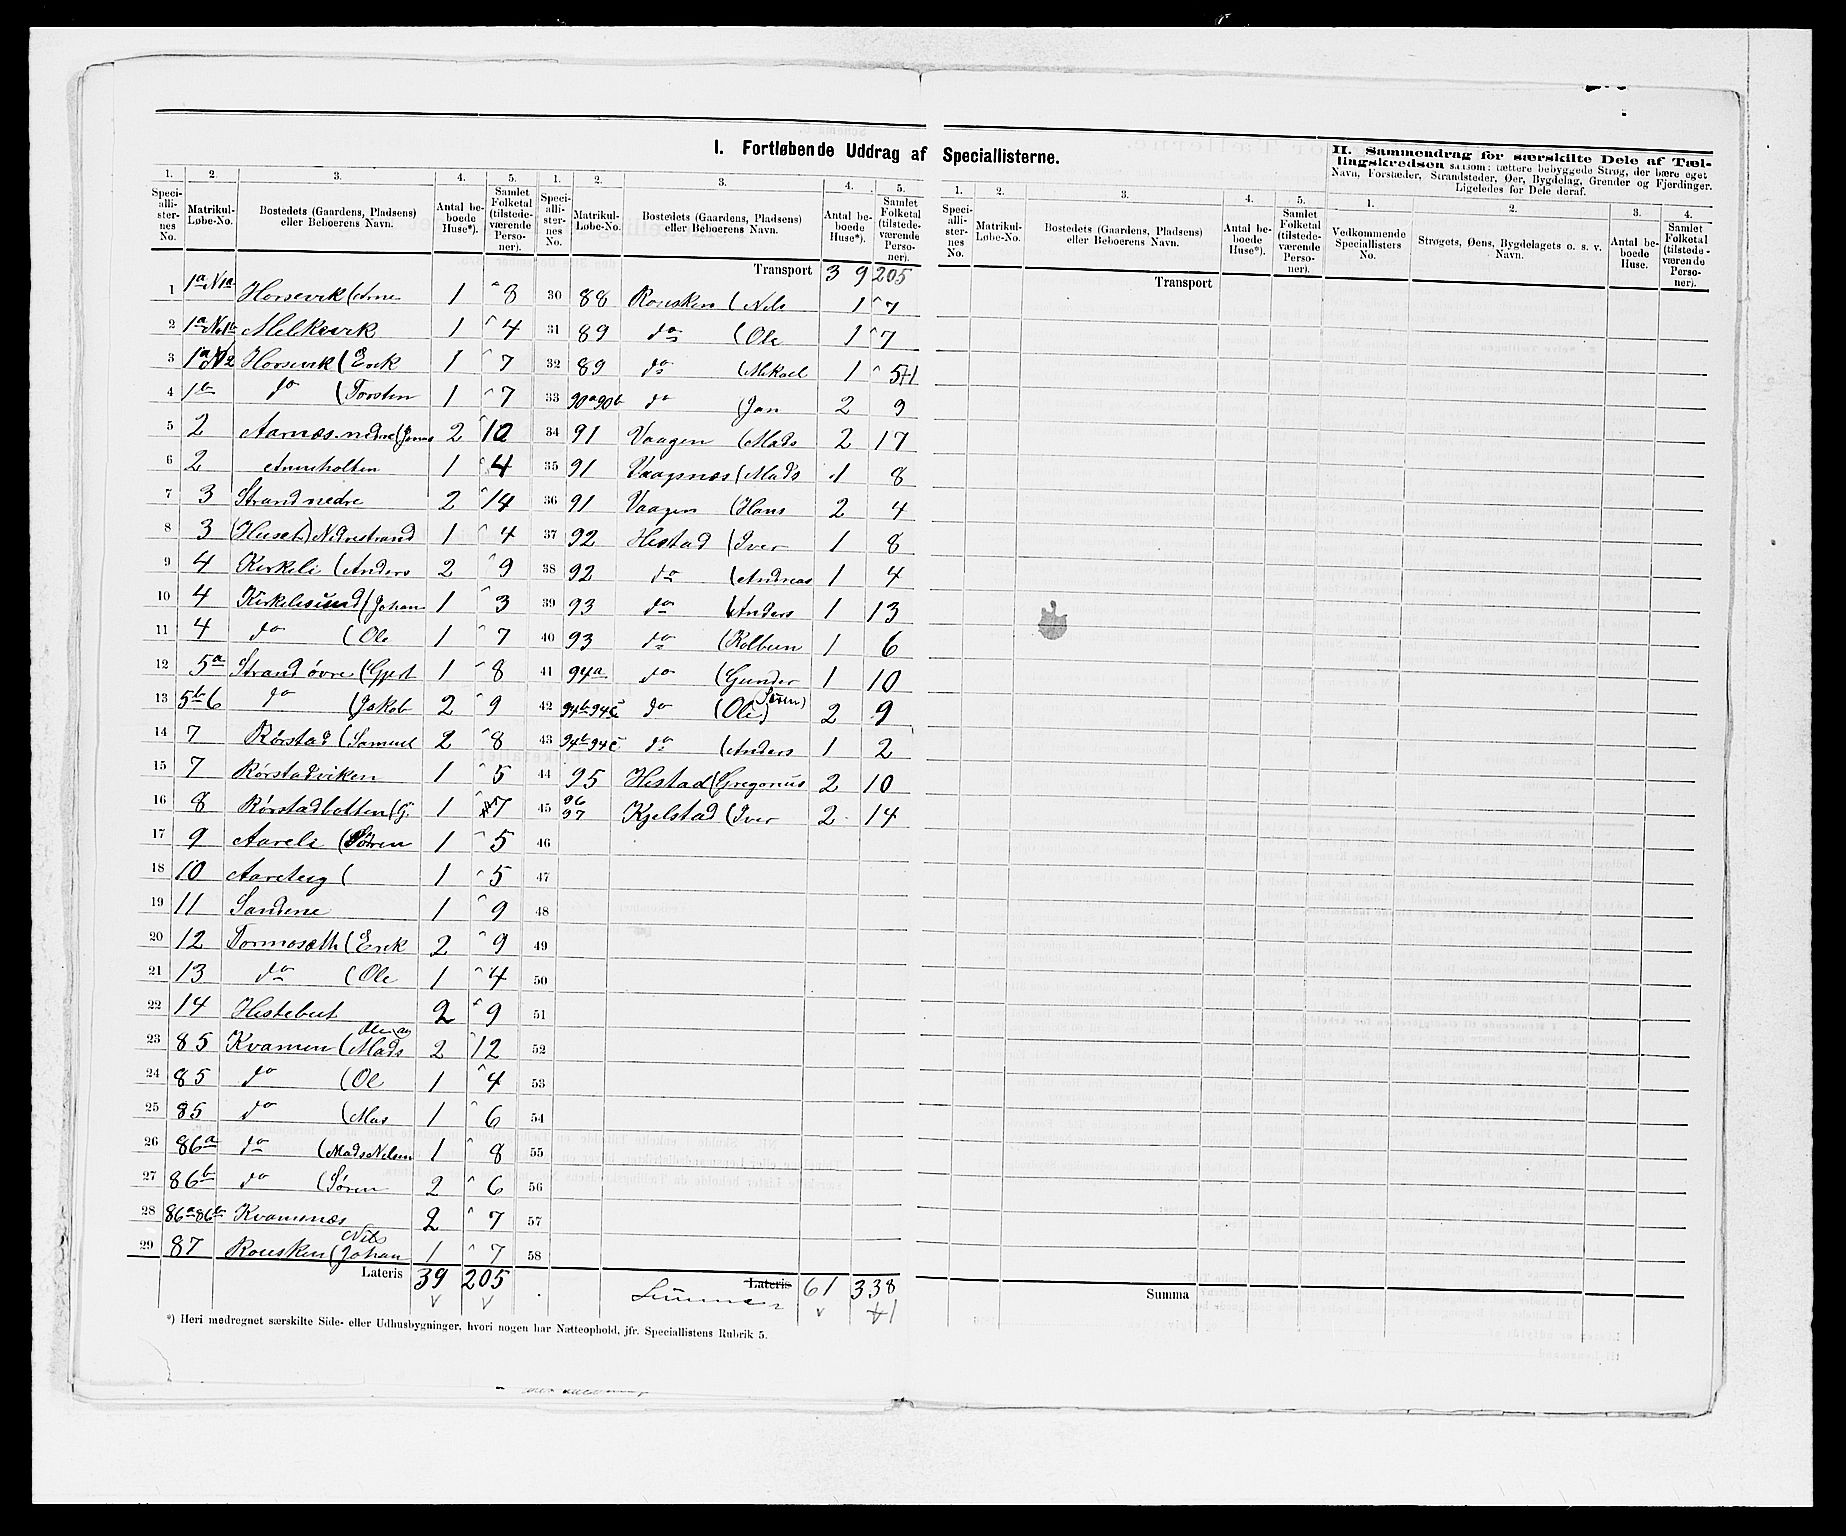 I. Fortløbende Uddrag af Speciallisterne.
II. Sammendrag for særskilte Dele af Tællingskredsen saasom: tættere bebyggede Strøg, der bære eget Navn, Forstæder, Strandsteder, Øer, Bygdelag, Grender og Fjerdinger. Ligeledes for Dele deraf.
1. 2. 3. 4. 5. 1. 2. 3. 4. 5. 1. 2. 3. 4. 5. 1. 2. 3. 4.
Speciallisternes No. Matrikul-Løbe-No. Bostedets (Gaardens, Pladsens) eller Beboerens Navn. Antal beboede Huse*). Samlet Folketal (tilstedeværende Personer).
Speciallisternes No. Matrikul-Løbe-No. Bostedets (Gaardens, Pladsens) eller Beboerens Navn. Antal beboede Huse*). Samlet Folketal (tilstedeværende Personer).
Speciallisternes No. Matrikul-Løbe-No. Bostedets (Gaardens, Pladsens) eller Beboerens Navn. Antal beboede Huse*). Samlet Folketal (tilstedeværende Personer).
Vedkommende Speciallisters No. Strøgets, Øens, Bygdelagets o. s. v. Navn. Antal beboede Huse. Samlet Folketal (tilstedeværende Personer).
1 1a N1a Horsevik (Arne 1 8
2 1a No1b Melkevik 1 4
3 1a N2 Horsevik (Erik 1 7
4 1b do (Torsten 1 7
5 2 Aarnæs nedre (Jonas 2 10
6 2 Anneholten 1 4
7 3 Strand nedre 2 14
8 3 (Huset) Nedrestrand 1 4
9 4 Kirkeli (Anders 2 9
10 4 Kirkelisund (Johan 1 3
11 4 do (Ole 1 7
12 5a Strand øvre (Gjert 1 8
13 5b 6 do (Jakob 2 9
14 7 Rørstad (Samuel 2 8
15 7 Rørstadviken 1 5
16 8 Rørstadbotten (G. 1 7
17 9 Aareli (Søren 1 5
18 10 Aareteig ( 1 5
19 11 Sandene 1 9
20 12 Tormosæth (Erik 2 9
21 13 do (Ole 1 4
22 14 Hestebeit 2 9
23 85 Kvamen (Ole og Mads 2 12
24 85 do (Ol 1 4
25 85 do (Mas 1 6
26 86a do (Mads Nilsen 1 8
27 86b do (Søren 2 6
28 86a 86b Kvamsnæs 2 7
29 87 Rousken (Nils Johan 1 7
Lateris 39 205
Transport 39 205
30 88 Rousken (Nils 1 7
31 89 do (Ole 1 7
32 89 do (Mikael 1 5+1
33 90a 90b do (Jan 2 9
34 91 Vaagen (Mads 2 17
35 91 Vaagsnæs (Mads 1 8
36 91 Vaagen (Hans 2 4
37 92 Hestad (Iver 1 8
38 92 do (Andreas 1 4
39 93 do (Anders 1 13
40 93 do (Kolbein 1 6
41 94a do (Gunder 1 10
42 94b 94c do (Ole (Søren) 2 9
43 94b 94c do (Anders 1 2
44 95 Hestad (Gregorius 2 10
45 96 97 Kjelstad (Iver 2 14
46
47
48
49
50
51
52
53
54
55
56
57
58
Lateris Summa 61 338
+1
Transport
Summa
*) Heri medregnet særskilte Side- eller Udhusbygninger, hvori nogen har Natteophold, jfr. Speciallistens Rubrik 5.